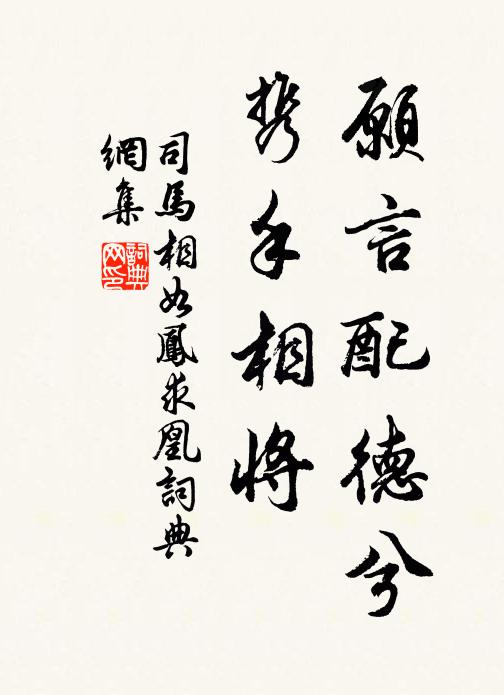 願言配德兮
携手相將
司馬相如鳳求凰詞典
網集
詞典
网印